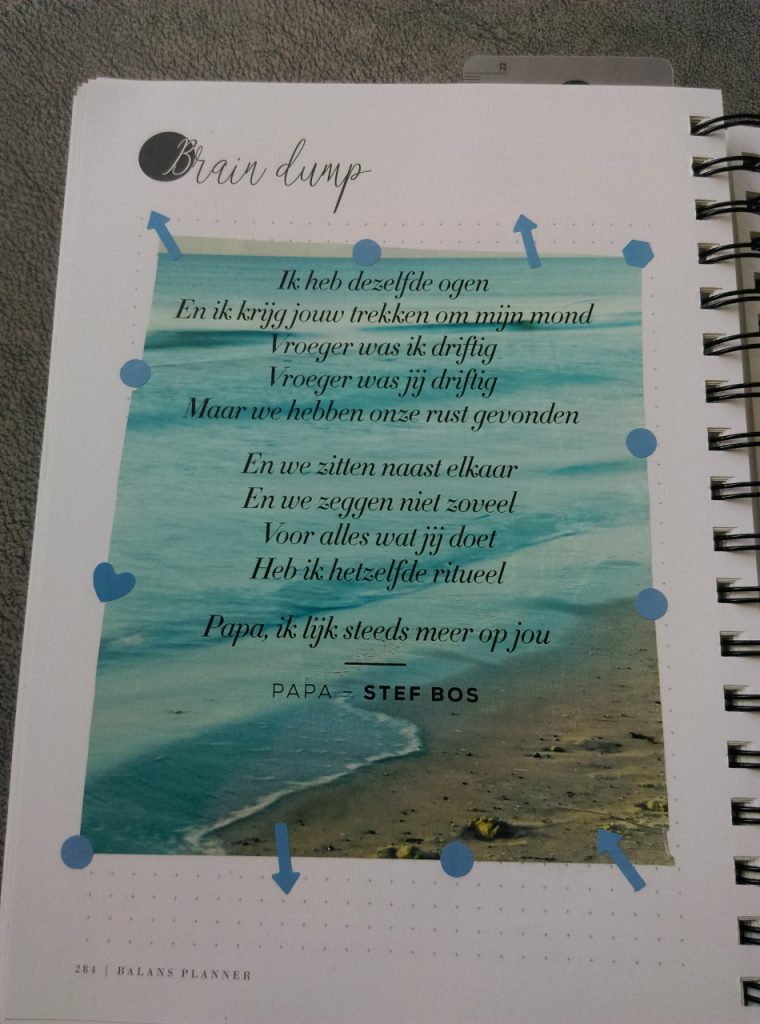 22
Brain dump
Ik heb dezelfde ogen
En ik krijg jouw trekken om mijn mond
Vroeger was ik driftig
Vroeger was jij driftig
Maar we hebben onze rust gevonden
En we zitten naast elkaar
En we zeggen niet zoveel
Voor alles wat jij doet
Heb ik hetzelfde ritueel
Papa, ik lijk steeds meer op jou
PAPA – STEF BOS
284 | BALANS PLANNER